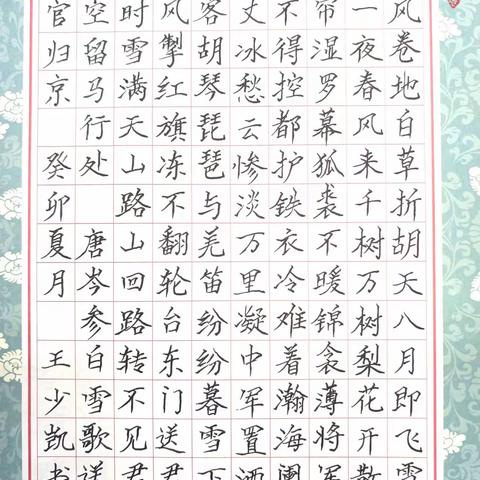 风卷地白草折胡天八月即飞雪
一夜春风来千树万树梨花开散
帘湿罗幕狐裘不暖锦衾薄将军
不得控都护铁衣冷难着瀚海阑
丈冰愁云惨淡万里凝中军置酒
客胡琴琵琶与羌笛纷纷暮雪下
风掣红旗冻不翻轮台东门送君
时雪满天山路山回路转不见君
空留马行处 唐岑参白雪歌送
官归京 癸卯夏月 王少凯书